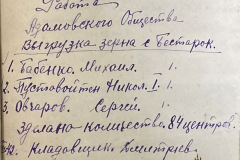 Работа
Адамовского Общества
Выгрузка зерна с Бестарок.
1. Бабенко. Михаил.
2. Пустовойтен Никол. I.
3. Овчаров. Сергей.
Зделана количество 84 центров.
Кладовщик Дмитриев